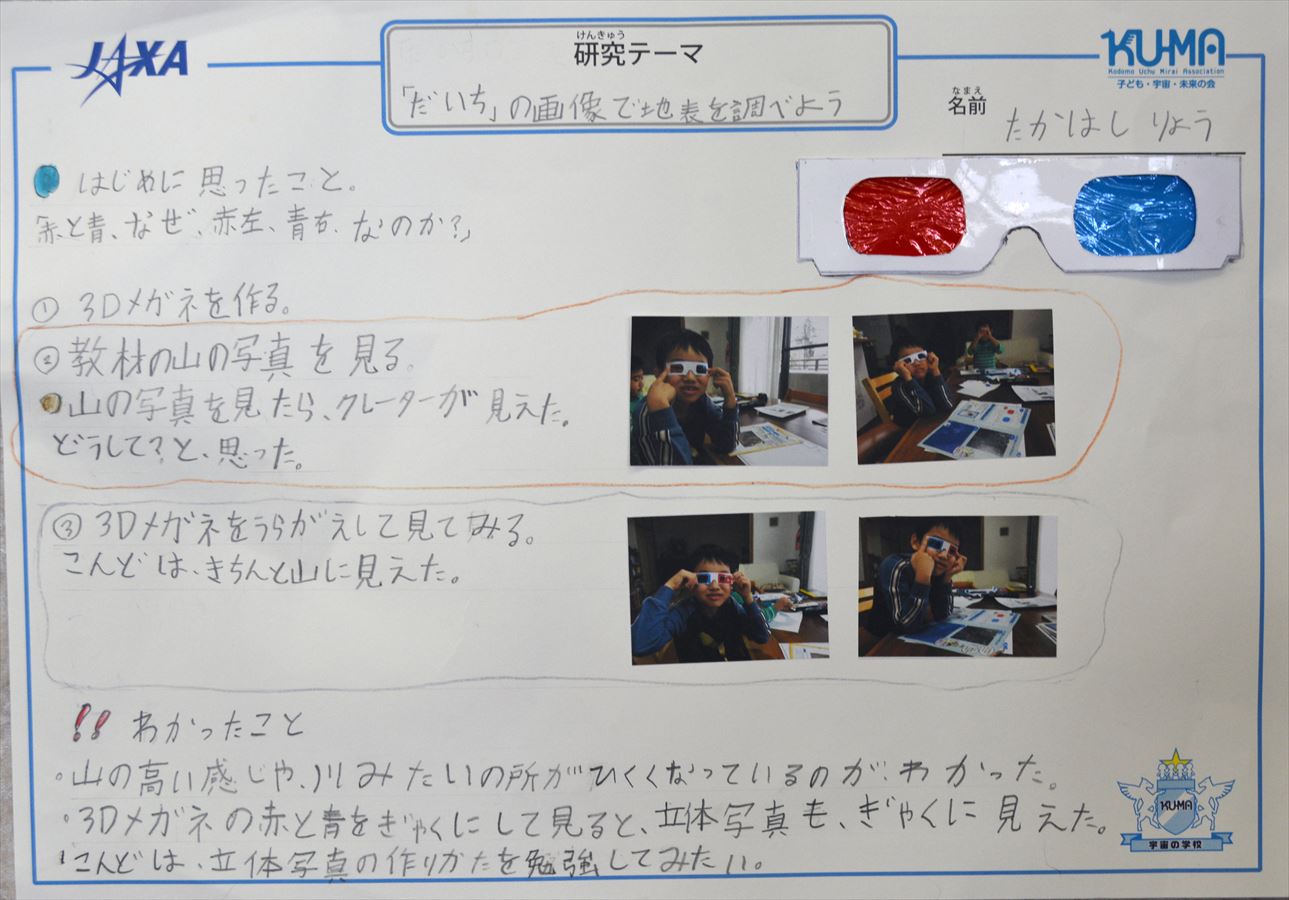 JAXA
けんきゅう
研究テーマ
「だいち」の画像で地表を調べよう
KU-MA
Kodomo Uchu Mirai Association
子ども・宇宙・未来の会
なまえ
名前
たかはし りょう
はじめに思ったこと。
「赤と青、なぜ、赤左、青右、なのか?」
① 3Dメガネを作る。
② 教材の山の写真を見る。
山の写真を見たら、クレーターが見えた。
どうして?と、思った。
③ 3Dメガネをうらがえして見てみる。
こんどは、きちんと山に見えた。
!! わかったこと
・山の高い感じや、川みたいの所がひくくなっているのが、わかった。
・3Dメガネの赤と青をぎゃくにして見ると、立体写真も、ぎゃくに見えた。
こんどは、立体写真の作りかたを勉強してみたい。
KU-MA
宇宙の学校